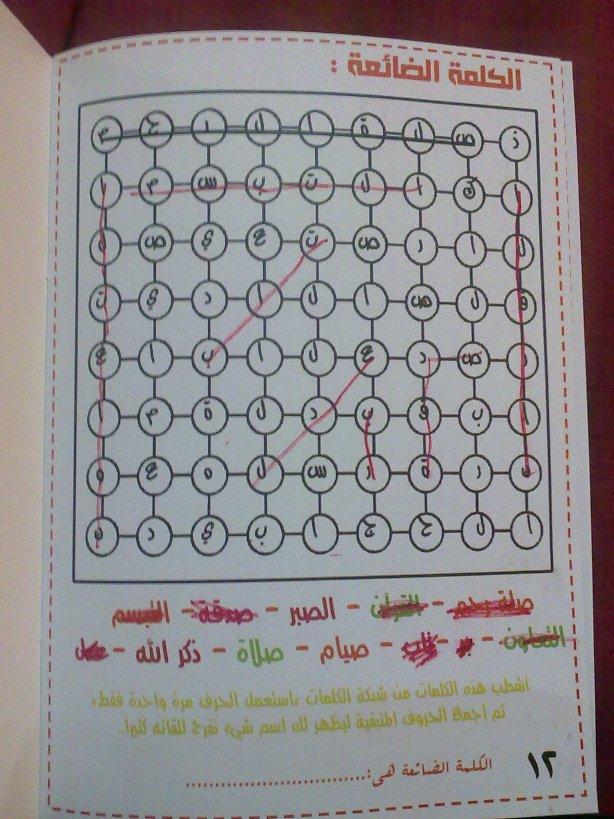 الكلمة الضائعة :
ذ ص ل ة ا ل ر ح م
ا ك ا ل ت ب س م ا
ل ا ر ص ت ع ي ص ل
ق ل ص ا ل ا د ي ت
ر ص د ع ل ا ب ا ع
ا ب ق ب د ل ة م ا
ن ر ة ر س ل ه ح و
ا ل ح ج ا ب ي د ن
صلة رحم - القرآن - الصبر - صدقة - التبسم
التعاون - بر - عتاب - صيام - صلاة - ذكر الله - عدل
اشطب هذه الكلمات من شبكة الكلمات ،استعمل الحرف مرة واحدة فقط،
ثم اجمع الحروف المتبقية ليظهر لك اسم شيء نفرح للقائه كثيراً..
الكلمة الضائعة هى:..............................
١٢